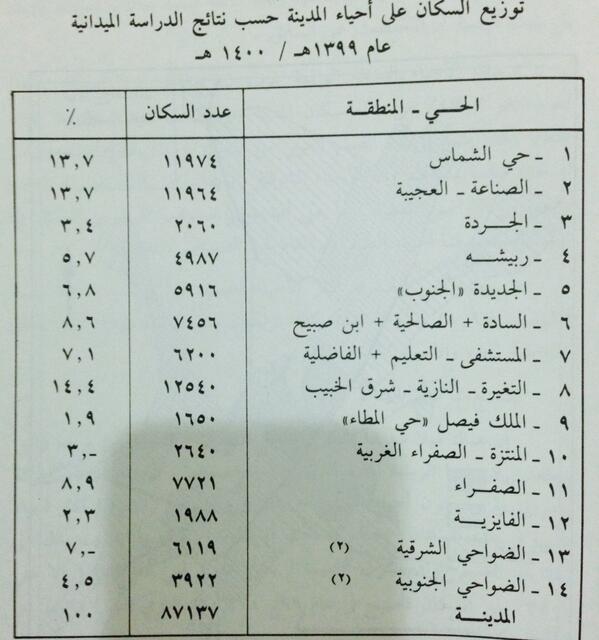 توزيع السكان على أحياء المدينة حسب نتائج الدراسة الميدانية
عام ١٣٩٩هـ / ١٤٠٠ هـ
الحـــي ـ المنطقـــة عدد السكان ٪
١ ـ حي الشماس ١١٩٧٤ ١٣,٧
٢ ـ الصناعة ـ العجيبة ١١٩٦٤ ١٣,٧
٣ ـ الجـــردة ٢٠٦٠ ٣,٤
٤ ـ ربيشـــه ٤٩٨٧ ٥,٧
٥ ـ الجديدة «الجنوب» ٥٩١٦ ٦,٨
٦ ـ السادة + الصالحية + ابن صبيح ٧٤٥٦ ٨,٦
٧ ـ المستشفى ـ التعليم + الفاضلية ٦٢٠٠ ٧,١
٨ ـ التغيرة ـ النازية ـ شرق الخبيب ١٢٥٤٠ ١٤,٤
٩ ـ الملك فيصل «حي المطاء» ١٦٥٠ ١,٩
١٠ ـ المنتزة ـ الصفراء الغربية ٢٦٤٠ ٣,ـ
١١ ـ الصفـــراء ٧٧٢١ ٨,٩
١٢ ـ الفايزيـــة ١٩٨٨ ٢,٣
١٣ ـ الضواحي الشرقية (٢) ٦١١٩ ٧,ـ
١٤ ـ الضواحي الجنوبية (٢) ٣٩٢٢ ٤,٥
المدينـــة ٨٧١٣٧ ١٠٠